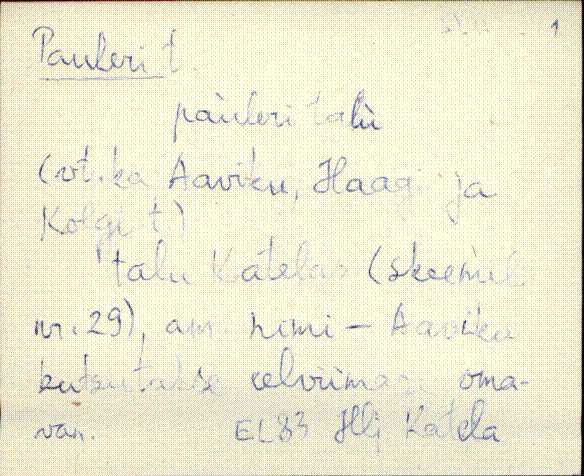 1
Pauleri t.
pàuleri talù
(vt. ka Aaviku, Haagi ja
Kolgi t.)
talu Katelas (skeemil
nr. 29), am. nimi — Aaviku
kutsutakse oma-
van. EL83 Hlj Katela